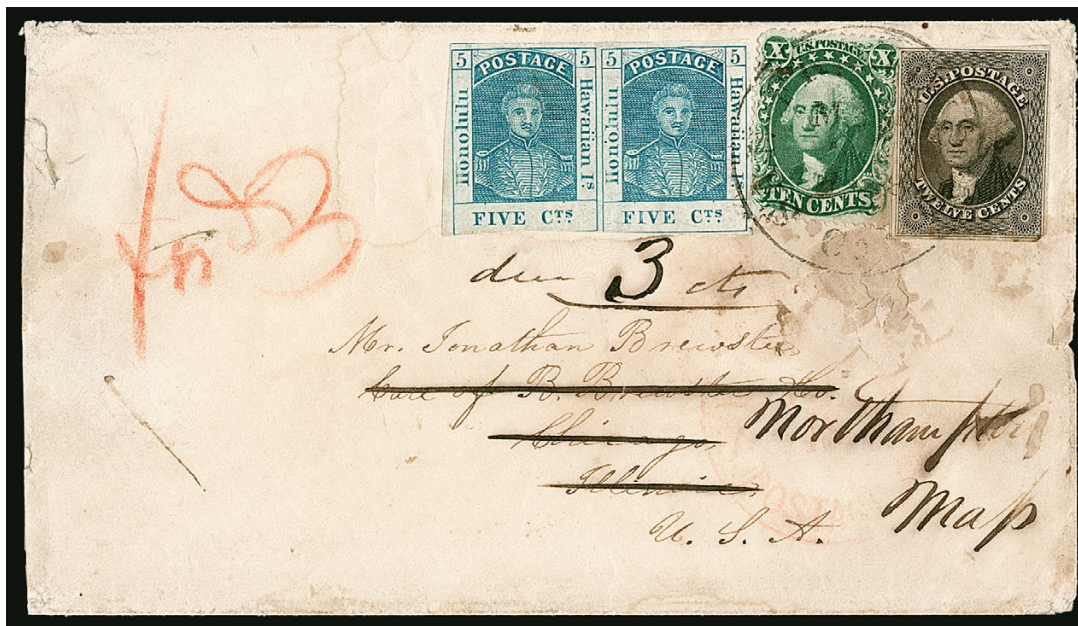 5 POSTAGE 5
Honolulu
Hawaiian Is.
FIVE CTS
5 POSTAGE 5
Honolulu
Hawaiian I
FIVE CTS
X U.S. POSTAGE X
TEN CENTS
U.S. POSTAGE
TWELVE CENTS
due 3 cts
Mr. Jonathan Brewster
Care of B. Brewster Co.
Chicago
Northampton
Illinois
Mass
U. S. A.